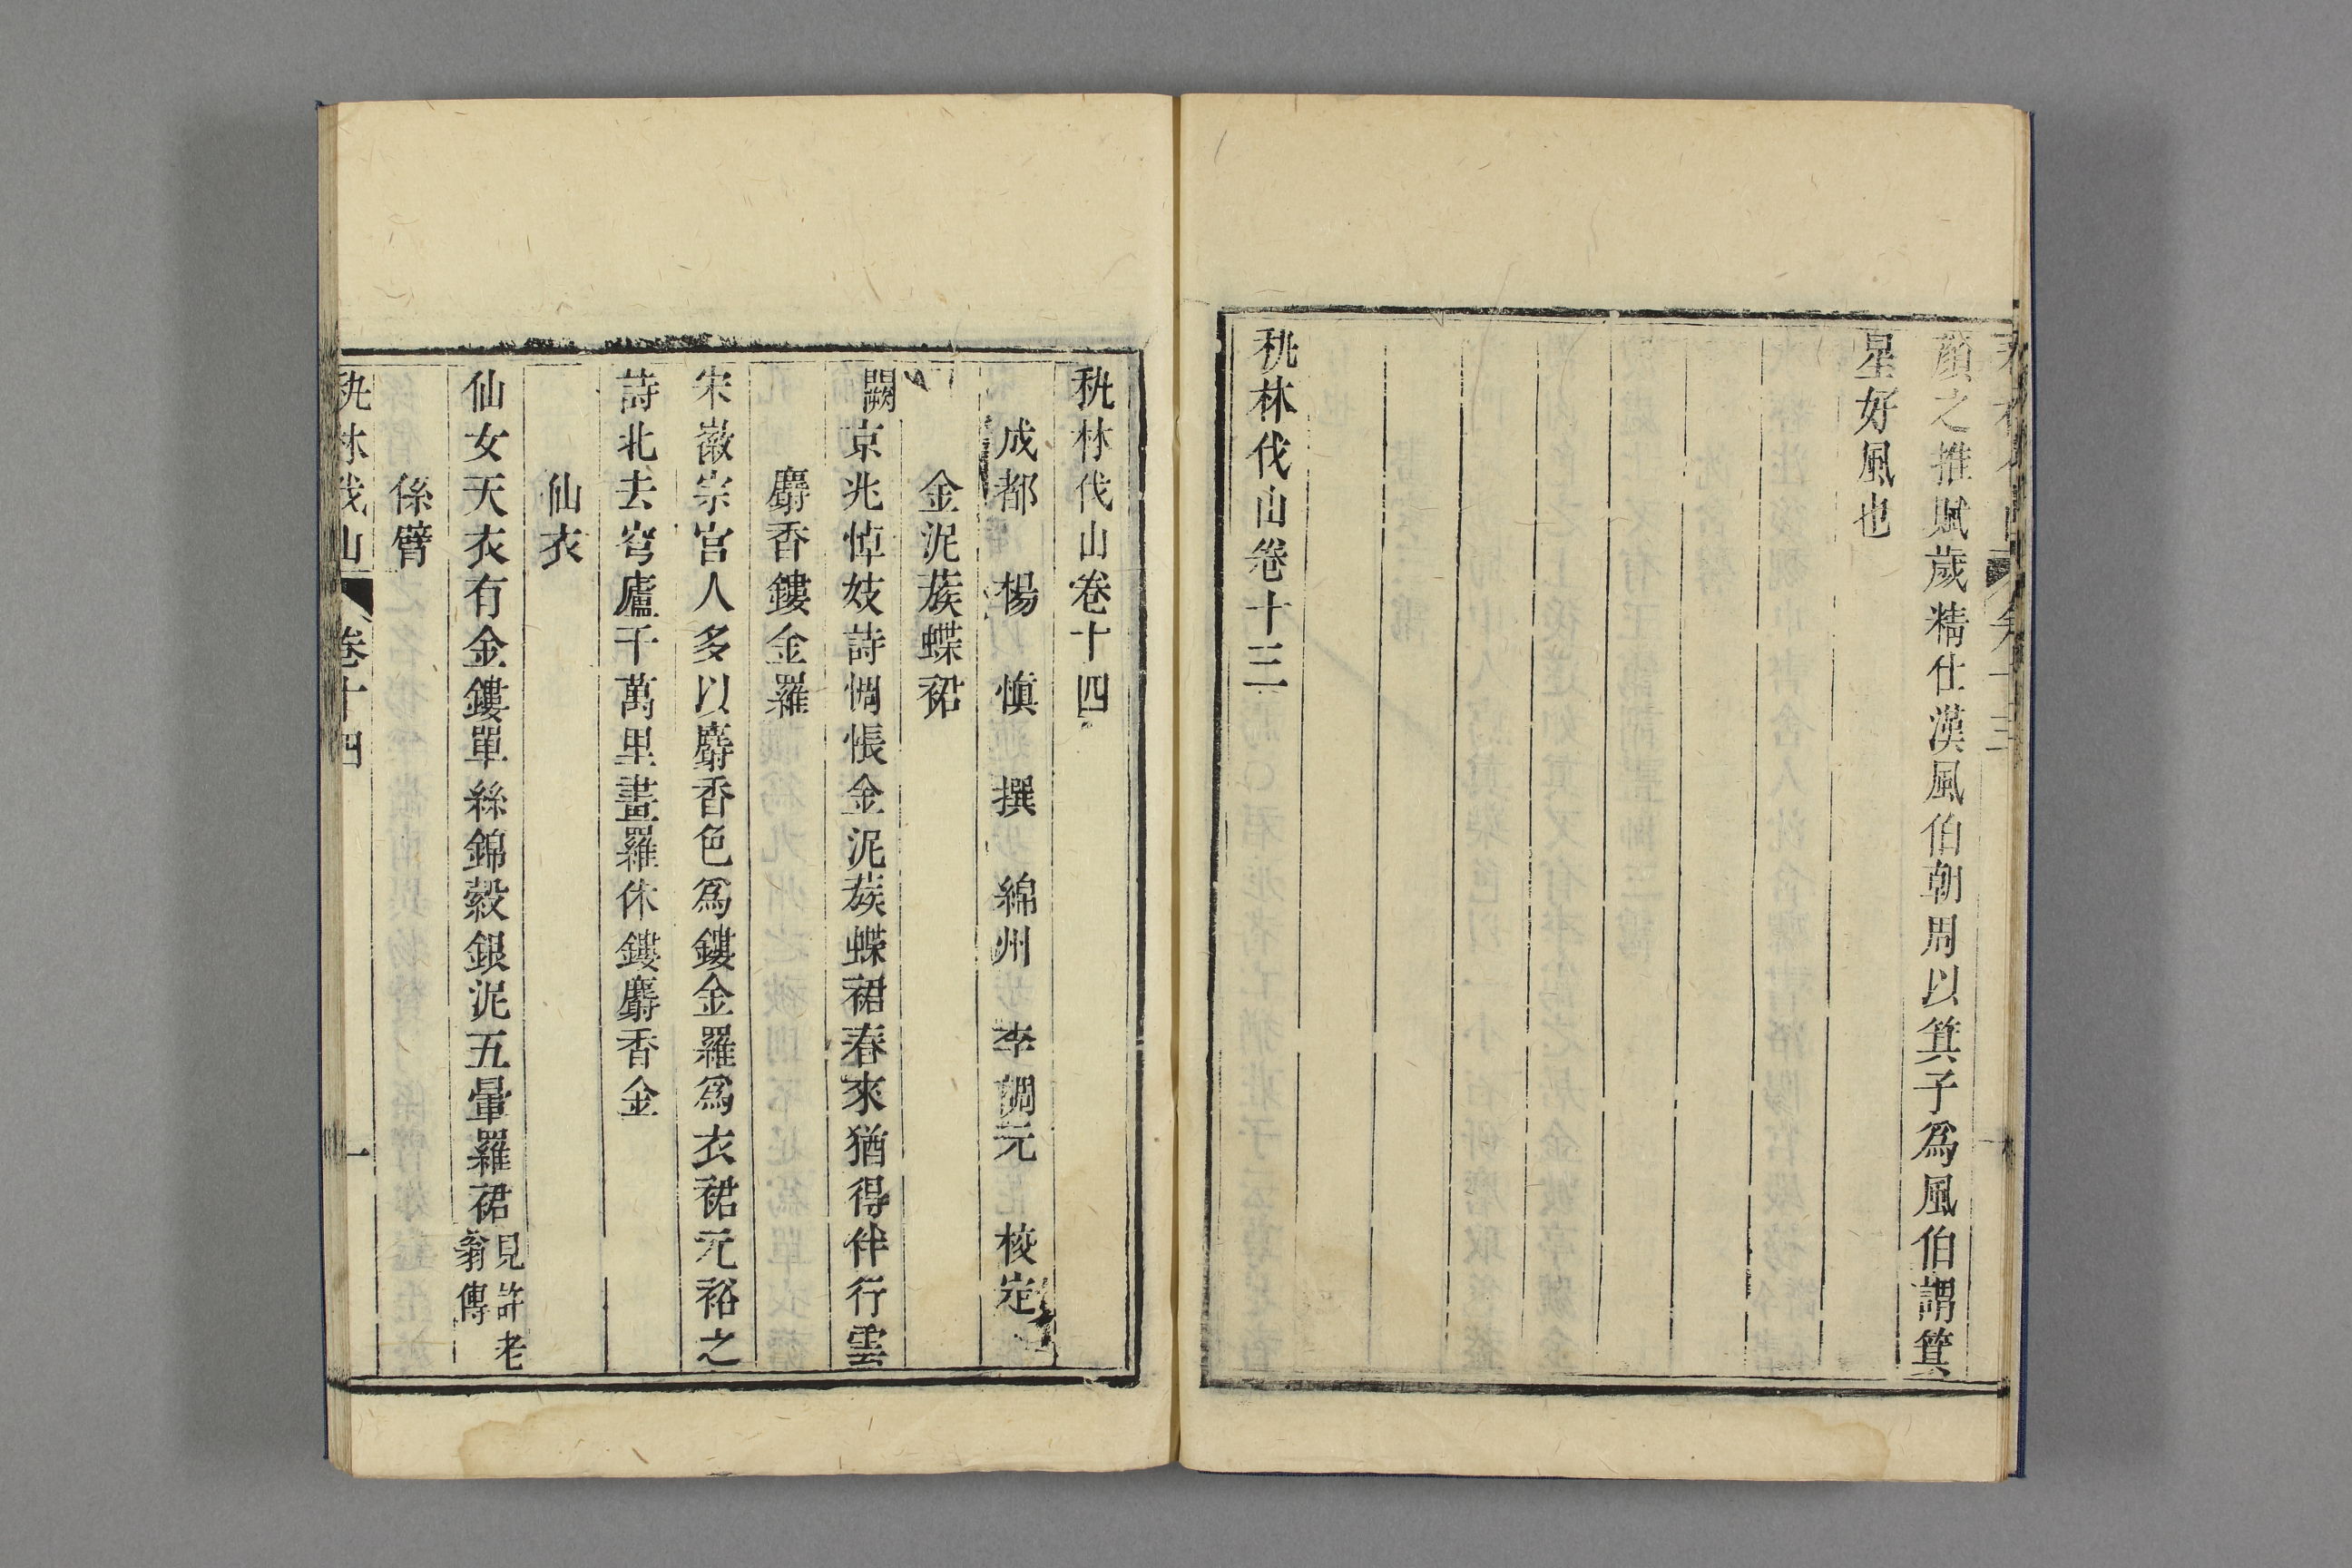 顔之推賦歲精仕漢風伯朝周以箕子為風伯謂箕
星好風也
秇林伐山卷十三
秇林伐山卷十四
成都 楊 慎 撰 綿州 李調元 校定
金泥蔟蝶裙
闕京兆悼妓詩惆悵金泥蔟蝶裙春來猶得伴行雲
麝香鏤金羅
宋徽宗宮人多以麝香色爲鏤金羅爲衣裙元裕之
詩北去穹廬千萬里畫羅休鏤麝香金
仙衣
仙女天衣有金鏤單絲錦縠銀泥五暈羅裙見許老翁傳
係臂
秇林伐山 卷十四 一